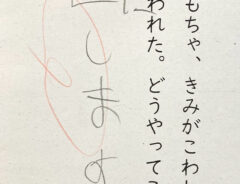 もちゃ、きみがこわし
われた。どうやってこ
します